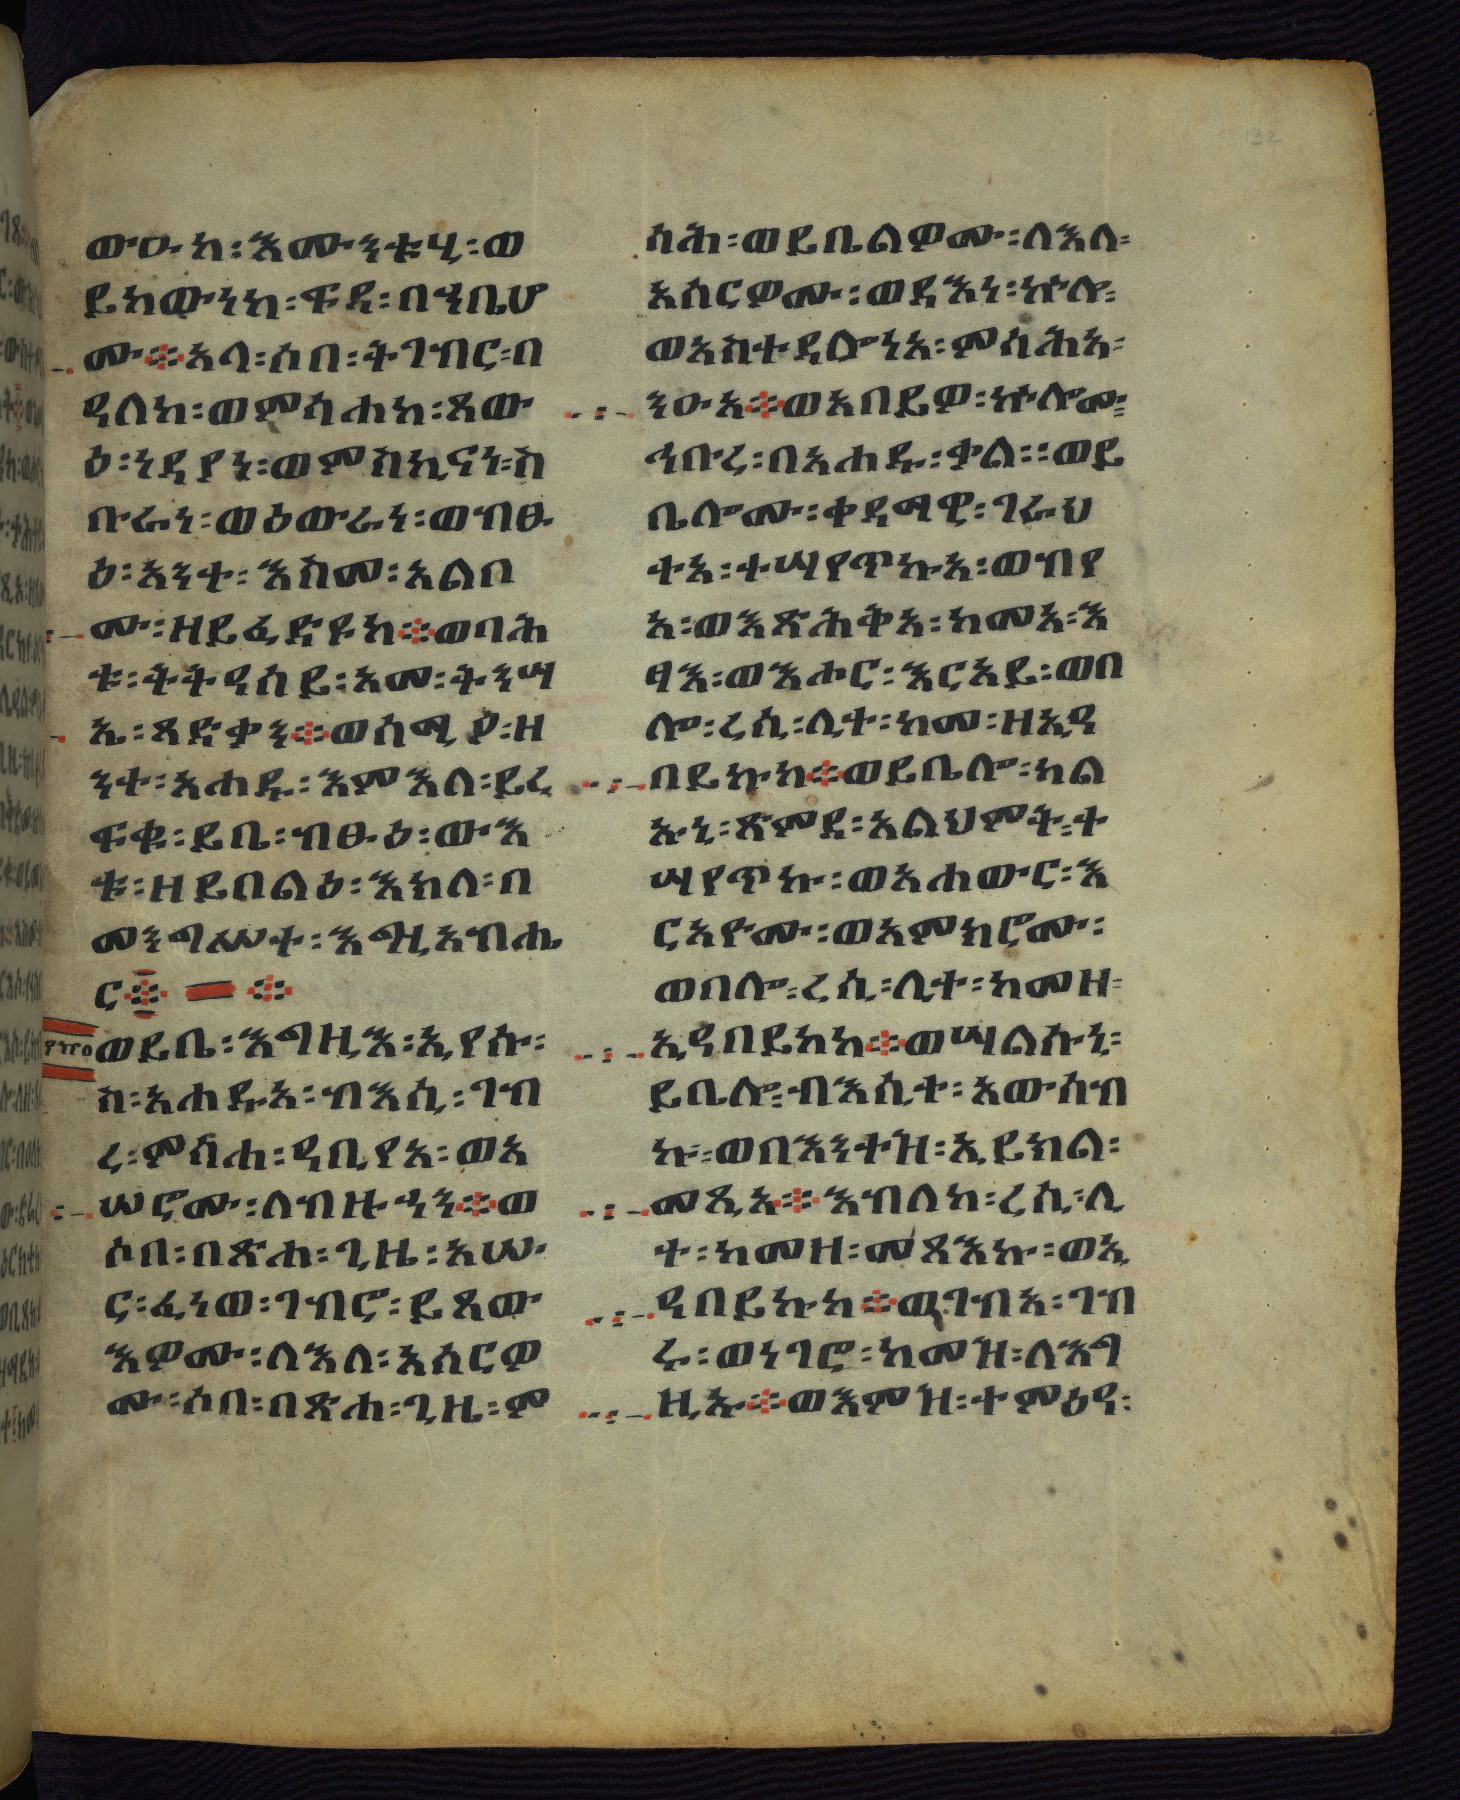 ውዑከ፡እሙንቱሂ፡ወ
ይከውነከ፡ፍዳ፡በኀቤሆ
ሙ፨አላ፡ሶበ፡ትገብር፡በ
ዓለከ፡ወምሳሐከ፡ጸው
ዕ፡ነዳያነ፡ወምስኪናነ፡ስ
ቡራነ፡ወዕውራነ፡ወብፁ
ዕ፡አንተ፡እስመ፡አልቦ
ሙ፡ዘይፈድዩከ፨ወባሕ
ቱ፡ትትዓሰይ፡አመ፡ትንሣ
ኤ፡ጻድቃን፨ወሰሚዖ፡ዘ
ንተ፡አሐዱ፡እምእለ፡ይረ
ፍቁ፡ይቤ፡ብፁዕ፡ውእ
ቱ፡ዘይበልዕ፡እክለ፡በ
መንግሥተ፡እግዚአብሔ
ር፨ ፨
ወይቤ፡እግዚእ፡ኢየሱ፡
ስ፡አሐዱአ፡ብእሲ፡ገብ
ረ፡ምሳሐ፡ዓቢየአ፡ወአ
ሠሮሙ፡ለብዙኃን፨ወ
ሶበ፡በጽሐ፡ጊዜ፡አሡ
ር፡ፈነወ፡ገብሮ፡ይጸው
እዎሙ፡ለእለ፡አሰርዎ
ሙ፡ሶበ፡በጽሐ፡ጊዜ፡ም
ሳሕ፡ወይቤልዎሙ፡ለእለ፡
አሰርዎሙ፡ወዳእነ፡ኵሎ፡
ወአስተዳሎነአ፡ምሳሕአ፡
ንዑአ፨ወአበይዎ፡ኵሎሙ፡
ኅቡረ፡በአሐዱ፡ቃል፡፡ወይ
ቤሎሙ፡ቀዳማዊ፡ገራህ
ተአ፡ተሣየጥኩአ፡ወብየ
አ፡ወእጽሕቅአ፡ከመአ፡እ
ፃእ፡ወእሖር፡እርአይ፡ወበ
ሎ፡ረሲ፡ሊተ፡ከመ፡ዘኢዓ
በይኩከ፨ወይቤሎ፡ካል
ኡኒ፡ጽምደ፡አልህምት፡ተ
ሣየጥኩ፡ወአሐውር፡እ
ርአዮሙ፡ወአምክሮሙ፡
ወበሎ፡ረሲ፡ሊተ፡ከመዘ፡
ኢዓበይከከ፨ወሣልሱኒ፡
ይቤሎ፡ብእሲተ፡አውሰብ
ኩ፡ወበእንተዝ፡ኢይክል፡
መጺአ፨እብለከ፡ረሲ፡ሊ
ተ፡ከመዘ፡መጻእኩ፡ወኢ
ዓበይኩከ፨ወገብአ፡ገብ
ሩ፡ወነገሮ፡ከመዝ፡ለእግ
ዚኡ፨ወእምዝ፡ተምዕዓ፡